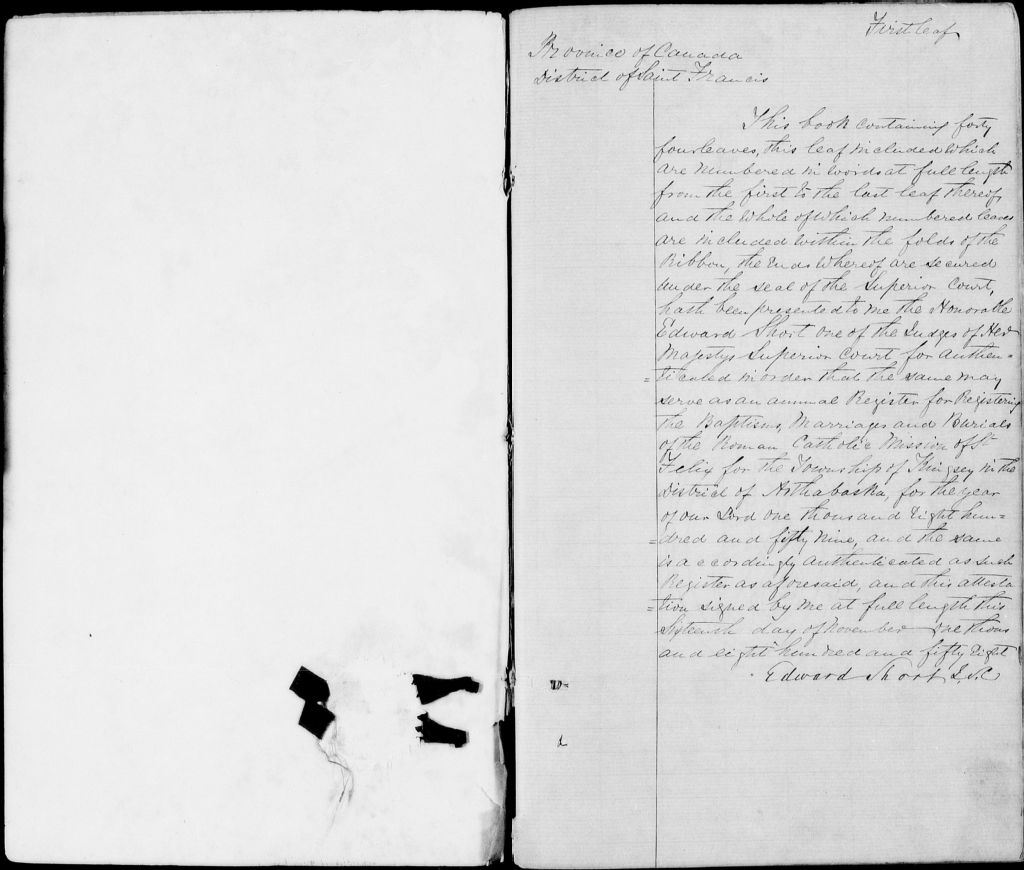 First leaf
Province of Canada
District of Saint Francis
This book containing forty
four leaves, this leaf included which
are numbered in words at full length
from the first to the last leaf thereof,
and the whole of which numbered leaves
are included within the folds of the
Ribbon, the ends whereof are secured
under the seal of the Superior Court,
hath been presented to me the Honorable
Edward Short one of the Judges of Her
Majestys Superior Court for authen=
=ticated in order that the same may
serve as an annual Register for Registering
the Baptisms, Marriages and Burials
of the Roman Catholic Mission of St
Felix for the Township of Kingsey in the
District of Arthabaska, for the year
of our Lord one thousand Eight hun=
=dred and fifty nine, and the same
is accordingly authenticated as such
Register as aforesaid, and this attesta
=tion signed by me at full length this
Sixteenth day of November one thous
and eight hundred and fifty Eight
Edward Short J.S.C